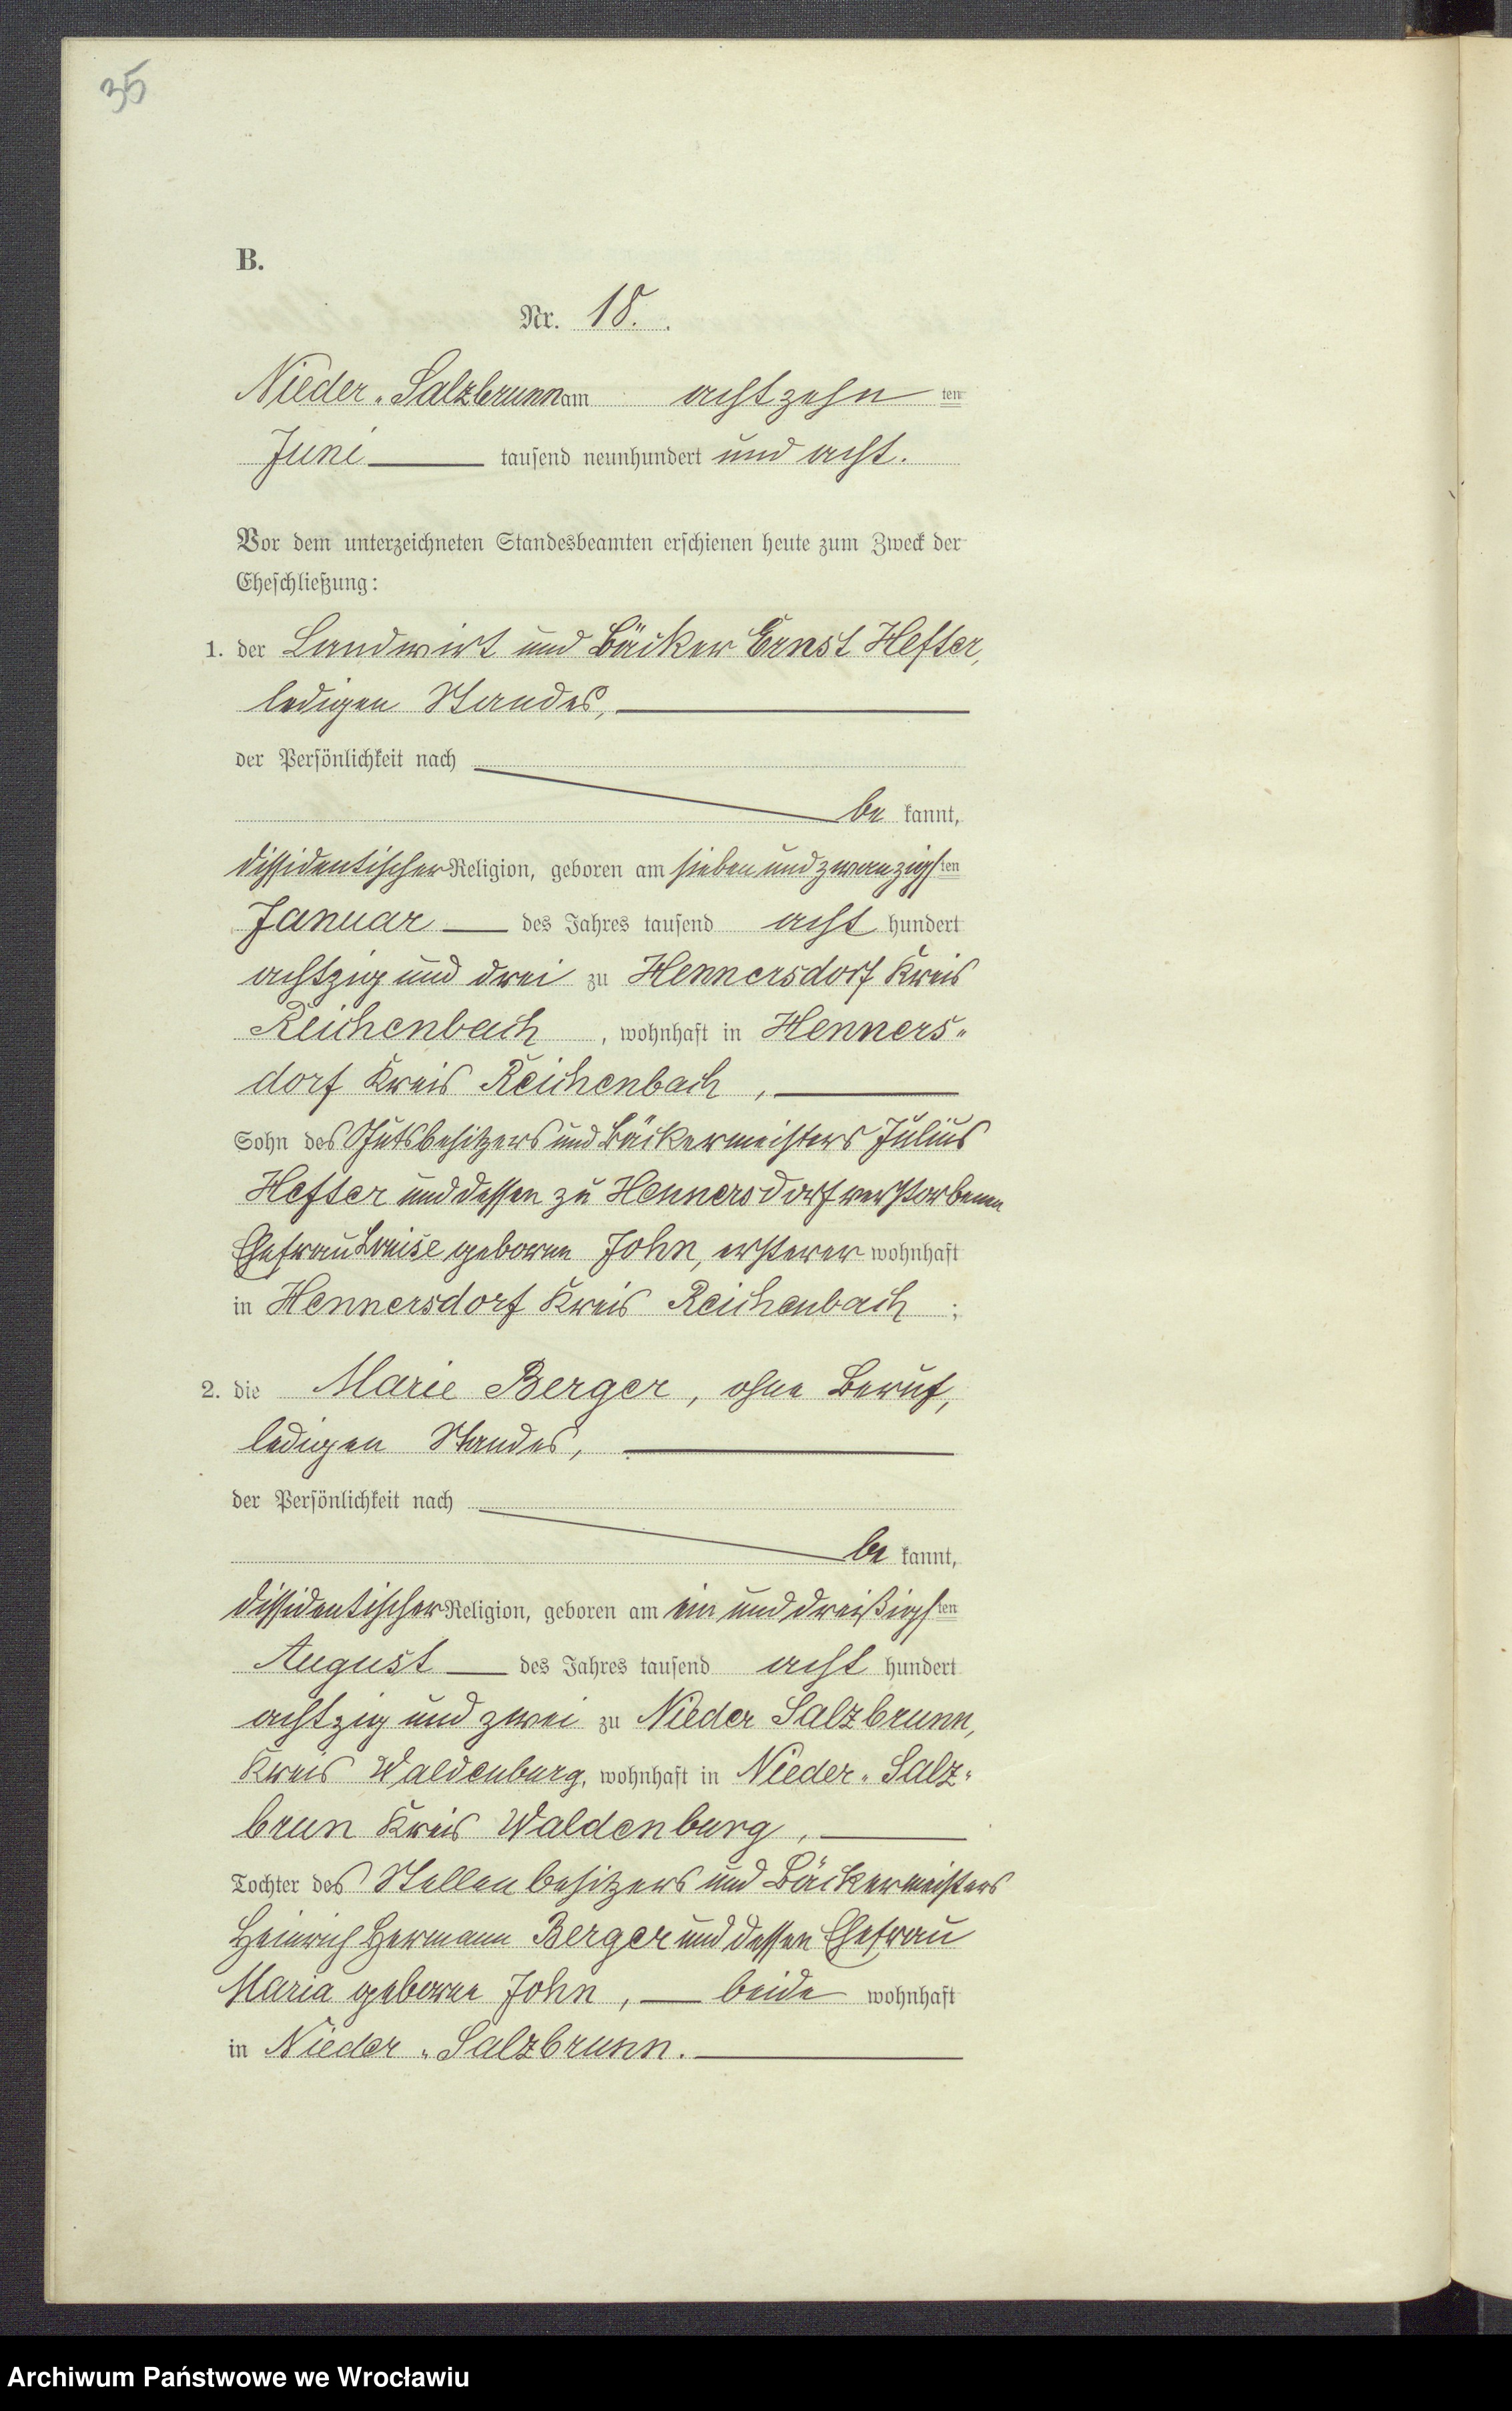 35
B.
Nr. 18.
Nieder-Salzbrunn am achtzehn ten
Juni tausend neunhundert und acht.
Vor dem unterzeichneten Standesbeamten erschienen heute zum Zweck der
Eheschließung:
1. der Landwirt und Bäcker Ernst Hefter,
ledigen Standes,
der Persönlichkeit nach
be kannt,
dissidentischer Religion, geboren am sieben und zwanzigsten
Januar des Jahres tausend acht hundert
achtzig und drei zu Hennersdorf Kreis
Reichenbach, wohnhaft in Henners-
dorf Kreis Reichenbach,
Sohn des Gutsbesitzers und Bäckermeisters Julius
Hefter und dessen zu Hennersdorf verstorbenen
Ehefrau Louise geborene John, ersterer wohnhaft
in Hennersdorf Kreis Reichenbach;
2. die Marie Berger, ohne Beruf,
ledigen Standes,
der Persönlichkeit nach
be kannt,
dissidentischer Religion, geboren am ein und dreißigsten
August des Jahres tausend acht hundert
achtzig und zwei zu Nieder Salzbrunn,
Kreis Waldenburg, wohnhaft in Nieder-Salz-
brun Kreis Waldenburg,
Tochter des Stellenbesitzers und Bäckermeisters
Heinrich Hermann Berger und dessen Ehefrau
Maria geborne John, beide wohnhaft
in Nieder-Salzbrunn.
Archiwum Państwowe we Wrocławiu